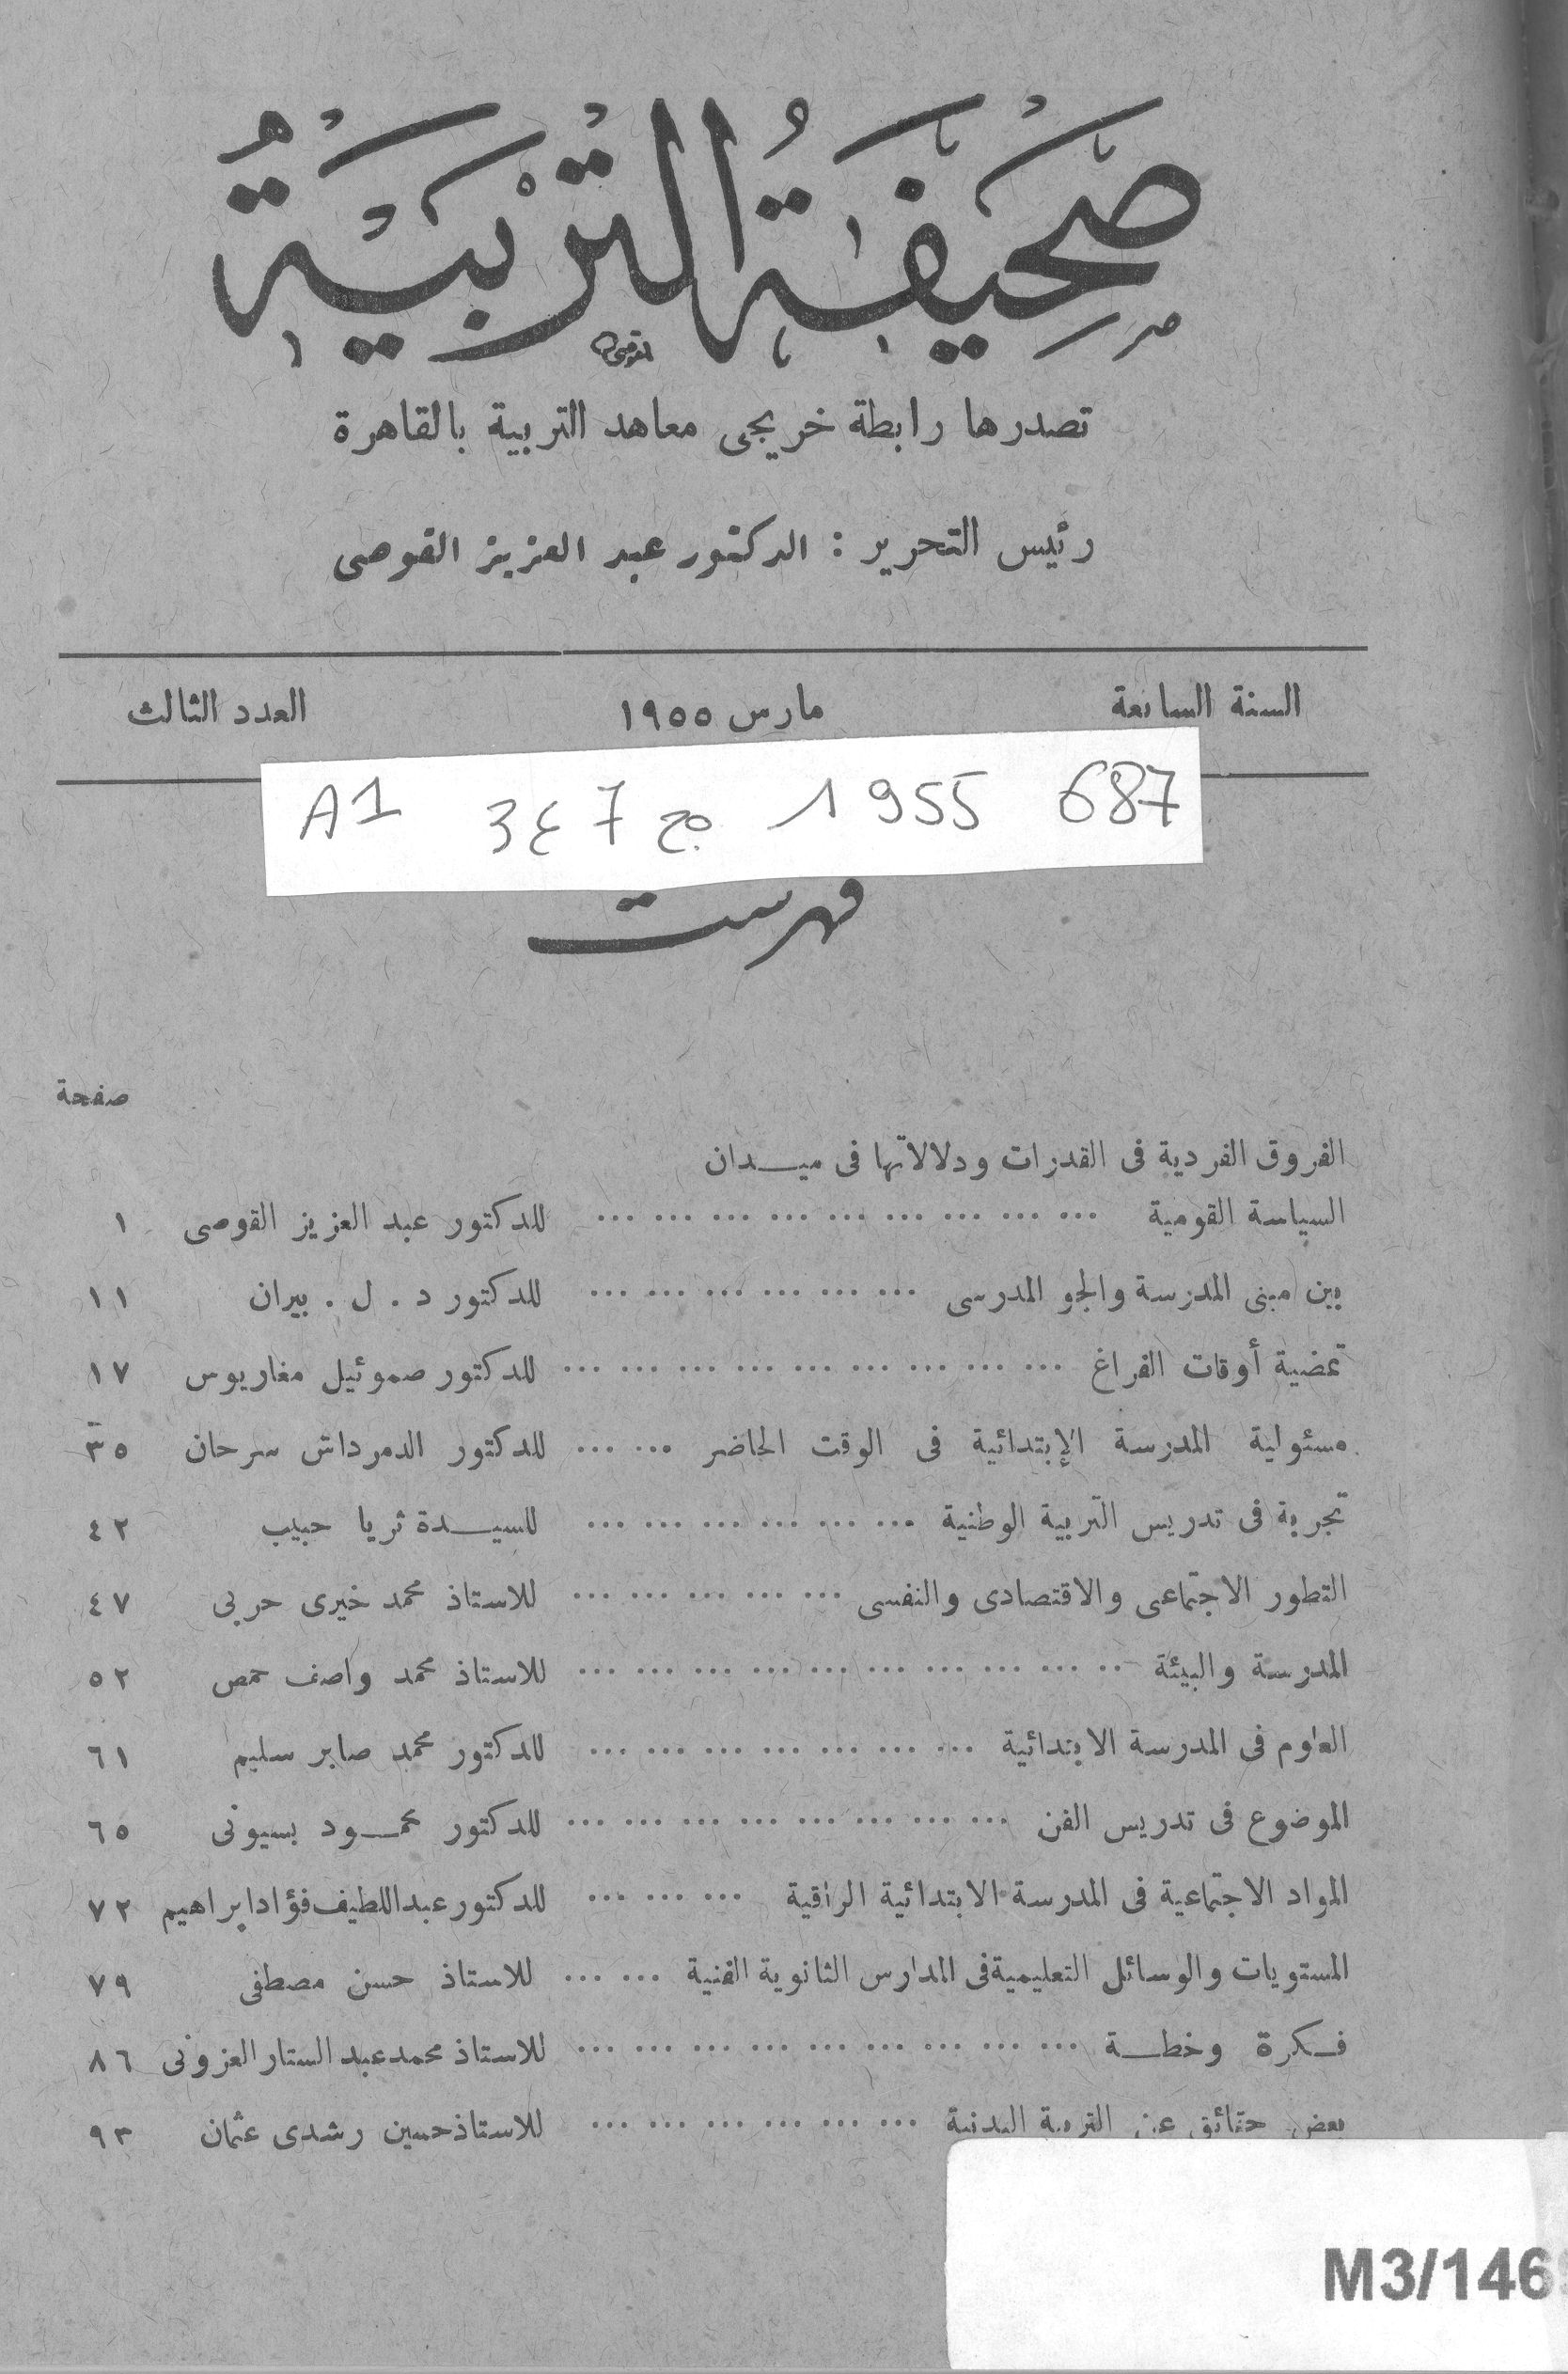 صَحِيفَةُ التَّرْبِيَةِ
تصدرها رابطة خريجى معاهد التربية بالقاهرة
رئيس التحرير : الدكتور عبد العزيز القوصى
السنة السابعة مارس ١٩٥٥ العدد الثالث
A1 3ع 7 مج 1 955 687
فهرست
صفحة
الفروق الفردية فى القدرات ودلالاتها فى ميـــدان
السياسة القومية ... ... ... ... ... ... ... ... ... للدكتور عبد العزيز القوصى ١
بين مبنى المدرسة والجو المدرسى ... ... ... ... ... ... للدكتور د . ل . بيران ١١
تمضية أوقات الفراغ ... ... ... ... ... ... ... ... ... للدكتور صموئيل مغاريوس ١٧
مسئولية المدرسة الإبتدائية فى الوقت الحاضر ... ... للدكتور الدمرداش سرحان ٣٥
تجربة فى تدريس التربية الوطنية ... ... ... ... ... ... للسيـــدة ثريا حبيب ٤٢
التطور الاجتماعى والاقتصادى والنفسى ... ... ... ... ... للاستاذ محمد خيرى حربى ٤٧
المدرسة والبيئة .. ... ... ... ... ... ... ... ... ... للاستاذ محمد واصف حمص ٥٢
العلوم فى المدرسة الابتدائية ... ... ... ... ... ... ... للدكتور محمد صابر سليم ٦١
الموضوع فى تدريس الفن ... ... ... ... ... ... ... ... للدكتور محمـــود بسيونى ٦٥
المواد الاجتماعية فى المدرسة الابتدائية الراقية ... ... ... للدكتور عبداللطيف فؤاد ابراهيم ٧٢
المستويات والوسائل التعليمية فى المدارس الثانوية الفنية ... ... للاستاذ حسن مصطفى ٧٩
فــكرة وخطـــة ... ... ... ... ... ... ... ... ... للاستاذ محمد عبد الستار العزونى ٨٦
بعض حقائق عن التربية البدنية ... ... ... ... ... ... للاستاذ حسين رشدى عثمان ٩٣
M3/146